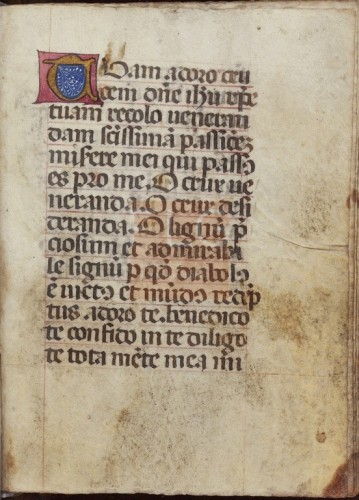 Tuam adoro cru
cem dñe ihu xpe
tuam recolo veneran
dam sctissimā passionē
miserere mei qui passus
es pro me. O crux ve
neranda. O crux desi
deranda. O lignū p
ciosum et admirabi
le signū p qđ diabolꝰ
ē victꝰ et mūdꝰ redēp
tus adoro te. benedico
te confido in te diligo
te tota mēte mea im